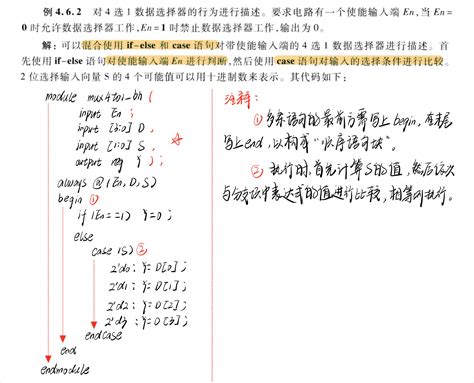 例 4.6.2 对 4 选 1 数据选择器的行为进行描述。要求电路有一个使能输入端 En,当 En=
0 时允许数据选择器工作,En=1 时禁止数据选择器工作,输出为 0。
解: 可以混合使用 if-else 和 case 语句对带使能输入端的 4 选 1 数据选择器进行描述。首
先使用 if-else 语句对使能输入端 En 进行判断,然后使用 case 语句对输入的选择条件进行比较。
2 位选择输入向量 S 的 4 个可能值可以用十进制数来表示。其代码如下:
module mux4to1-bh (
input En ;
input [3:0] D ,
input [1:0] S ,
output reg Y ) ;
always @ (En, D, S)
begin ①
if (En==1) Y=0 ;
else
case (S) ②
2'd0: Y=D[0] ;
2'd1: Y=D[1] ;
2'd2: Y=D[2] ;
2'd3: Y=D[3] ;
endcase
end
endmodule
注释:
① 多条语句的最前方需写上 begin, 在末尾
写上 end, 以构成“顺序语句块”。
② 执行时,首先计算S的值,然后依次
与分支中表达式的值进行比较,相等则执行。